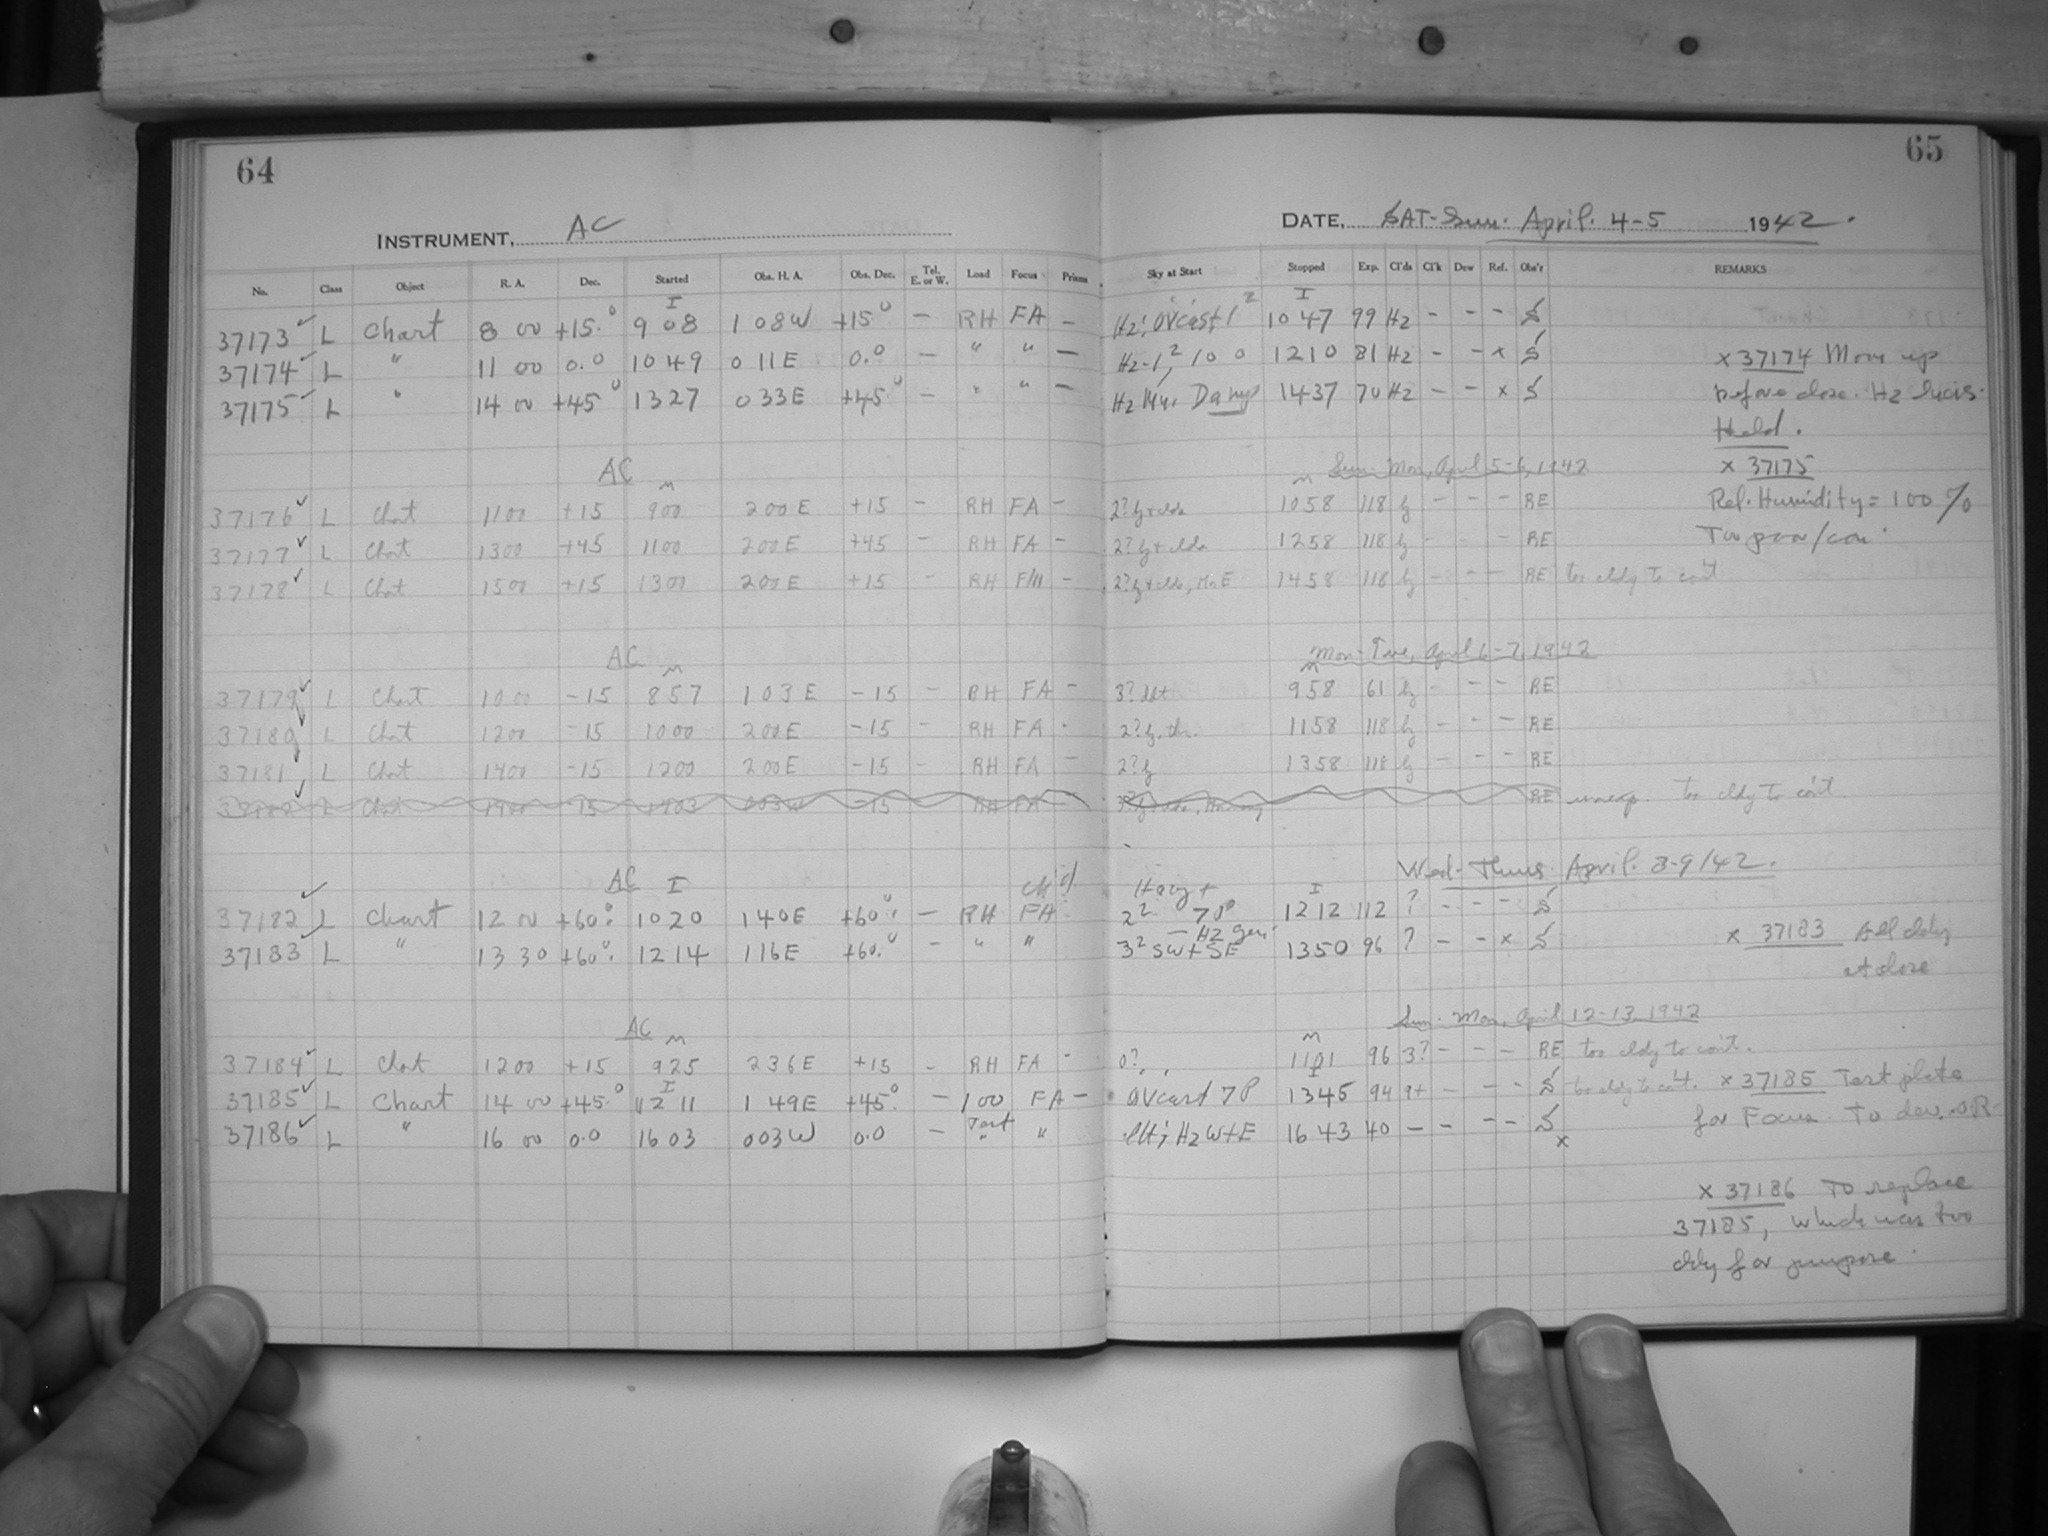 64
65
INSTRUMENT, AC
DATE, SAT-Sun. April. 4-5 1942.
No. Class Object R. A. Dec. Started Obs. H. A. Obs. Dec. Tel. E. or W. Load Focus Prisms Sky at Start Stopped Exp. Cl'ds Cl'k Dew Ref. Obs'r REMARKS
I I
37173 ✓ L Chart 8 00 +15.° 9 08 1 08W +15° - RH FA - Hz; Ovcast 1² 10 47 99 Hz - - - S
37174 ✓ L " 11 00 0.° 10 49 0 11E 0.° - " " - Hz-1², 10 0 1210 81 Hz - - x S x 37174 Moon up
37175 ✓ L " 14 00 +45° 1327 0 33E +45° - " " - Hz Damp 1437 70 Hz - - x S before close. Hz
Held.
AC Sun-Mon, April 5-6, 1942 x 37175
m m
37176 ✓ L Chart 1100 +15 900 200 E +15 - RH FA - 2? hz + clds 1058 118 hz - - - RE Rel. Humidity = 100 %
37177 ✓ L Chart 1300 +45 1100 200 E +45 - RH FA - 2? hz + clds 1258 118 hz - - - RE Too poor/con.
37178 ✓ L Chart 1500 +15 1300 200 E +15 - RH FA - 2? hz + clds, E 1458 118 hz - - - RE too cldy to con't
AC Mon-Tue, April 6-7, 1942
m m
37179 ✓ L Chart 1000 -15 857 103 E -15 - RH FA - 3? 958 61 hz - - - RE
37180 L Chart 1200 -15 1000 200E -15 - RH FA - 2? hz, 1158 118 hz - - - RE
37181 L Chart 1400 -15 1200 200E -15 - RH FA - 2? hz 1358 118 hz - - - RE
37182 L Chart 1400 -15 1403 003W -15 RH FA RE unexp. too cldy to con't.
AC I Wed-Thurs April. 8-9/42.
ck'd Hazy + I
37182 ✓ L Chart 12 00 +60° 1020 140E +60° - RH FA 2² 70° 1212 112 ? - - - S
- Hz gen.
37183 L " 13 30 +60° 1214 116E +60.° - " " 3² SW + SE 1350 96 ? - - x S x 37183 All cldy
at close
AC Sun-Mon, April 12-13, 1942
m m
37184 ✓ L Chart 1200 +15 925 236E +15 - RH FA - 0? 1101 96 3? - - - RE too cldy to con't.
I I
37185 ✓ L Chart 14 00 +45.° 1211 1 49E +45° - 100 FA - Ovcast 7P 1345 94 9+ - - - S too cldy to con't. x 37185 Test plate
Test for Focus. To dev.
37186 ✓ L " 16 00 0.0 1603 003W 0.0 - " " Hz W+E 1643 40 - - - - S x
x 37186 To replace
37185, which was too
cldy for purpose.